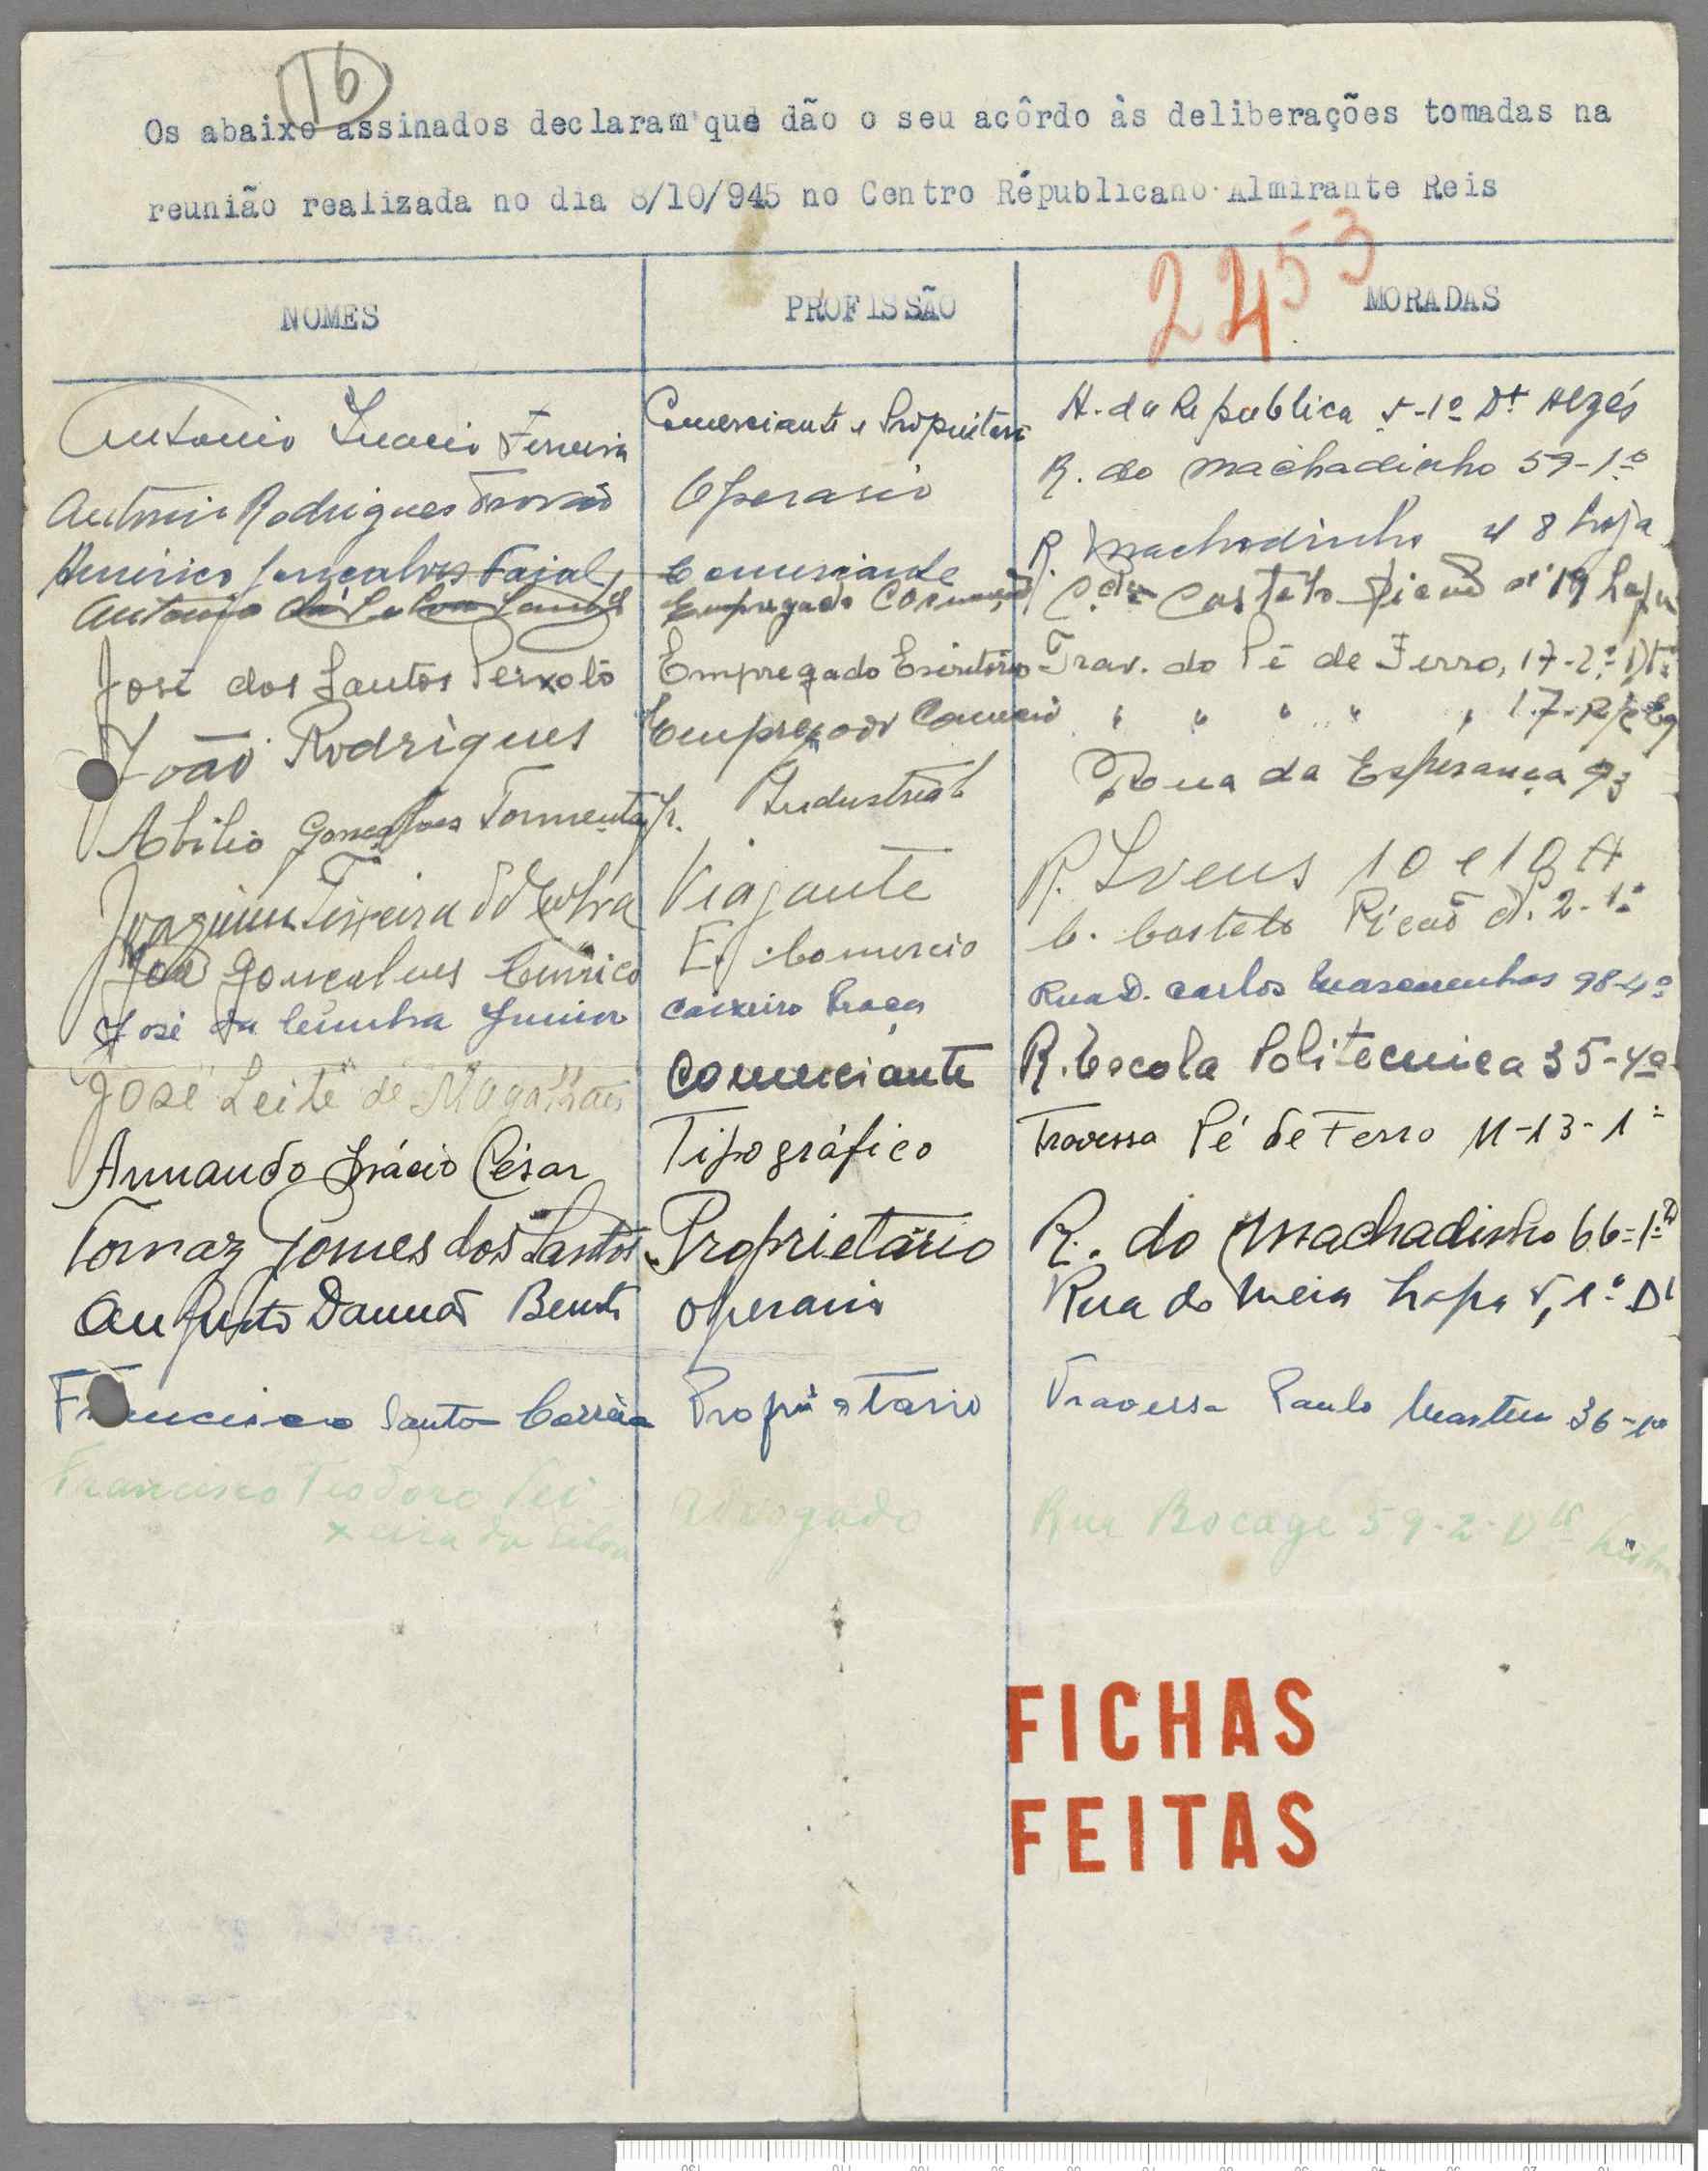 16
Os abaixo assinados declaram que dão o seu acôrdo às deliberações tomadas na
reunião realizada no dia 8/10/945 no Centro Républicano Almirante Reis
2453
NOMES PROFISSÃO MORADAS
Antonio Inacio Ferreira Comerciante e Propietario A. da Republica 5-1º Dt Algés
Antonio Rodrigues Trovão Operario R. do Machadinho 59-1º
Américo Gonçalves Faial Comerciante R. Machadinho 48 loja
Antonio da Empregado Comercio Cç.da Castelo Picão nº 19 Loja
José dos Santos Peixoto Empregado Escritório Trav. do Pé de Ferro, 17-2º Dtº
João Rodrigues Empregado Comercio " " " " " 17-R/c Eq
Abilio Gonçalves Tormenta Jr. Industrial Rua da Esperança 93
Joaquim Teixeira da Silva Viajante R. Ivens 10 e 10 A
José Gonçalves E. Comercio C. Castelo Picão nº 2-1º
José da Cunha Junior Caixeiro Praça Rua D. Carlos Mascarenhas 98-4º
José Leite de Magalhães Comerciante R. Escola Politecnica 35-4º
Armando Inácio César Tipográfico Travessa Pé de Ferro 11-13-1º
Tomaz Gomes dos Santos Proprietário R. do Machadinho 66-1º D
Augusto Damião Bento Operario Rua do Meio Lapa 5, 1º Dt
Francisco Santos Corrêia Propietario Travessa Paulo Martins 36-1º
Francisco Teodoro Tei
xeira da Silva Advogado Rua Bocage 59-2-Dto Lisboa
FICHAS
FEITAS